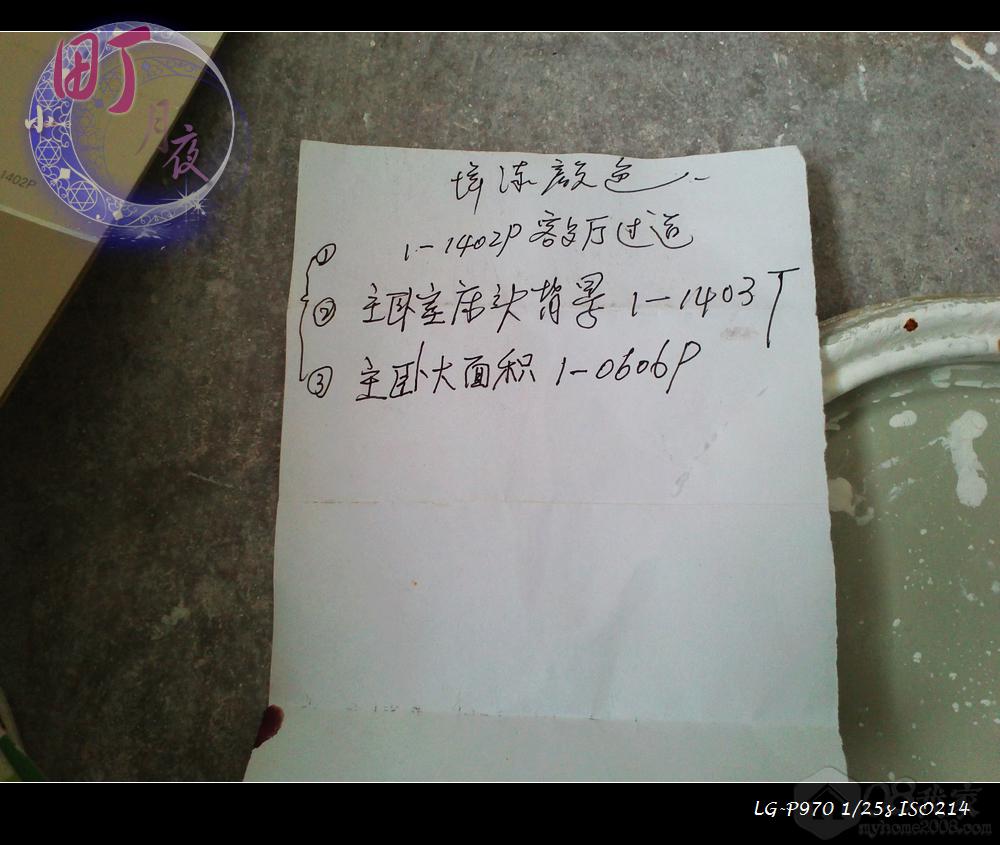 町
小
月夜
1402P
墙漆颜色
① 1-1402P 客餐厅过道
② 主卧室床头背景 1-1403T
③ 主卧大面积 1-0606P
LG-P970 1/25s ISO214
08我家
myhome2008.com